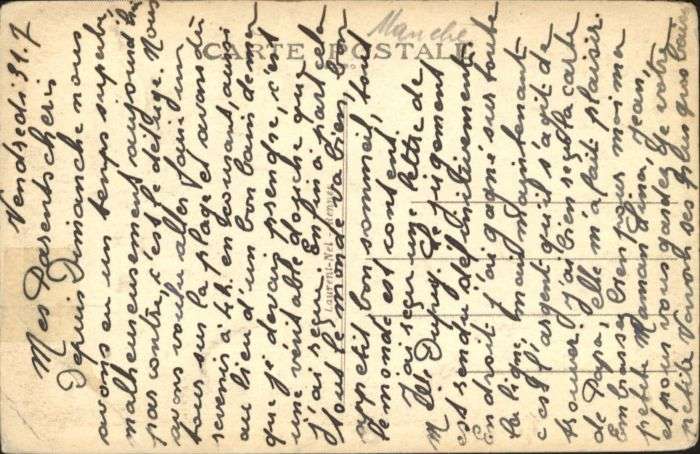 Manche
CARTE POSTALE
Laurent-Nel, Rennes
Vendredi 31.7
Mes Parents chéris
Depuis Dimanche nous
avons eu un temps superbe
malheureusement aujourd'hui
par contre, c'est le déluge. Nous
avons voulu aller faire un
tour sur la plage et avons dû
revenir à 4h. en courant, aussi
au lieu d'un bon bain de mer
que je devais prendre, c'est
une véritable douche que
j'ai reçu. Enfin à part cela
tout le monde va bien, bon
appétit bon sommeil, tout
le monde est content.
J'ai reçu une lettre de
M. Dupuy. Le jugement
est rendu définitivement
En droit j'ai gagné sur toute
la ligne, mais maintenant
c'est l'argent qu'il s'agit de
trouver. J'ai bien reçu la carte
de Papa, elle m'a fait plaisir.
Embrassez bien pour moi ma
petite Maman Jean,
et pour vous gardez de votre
petite ses plus doux